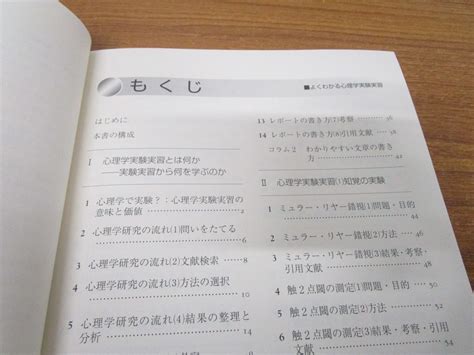 もくじ
■よくわかる心理学実験実習
はじめに
本書の構成
I 心理学実験実習とは何か
――実験実習から何を学ぶのか
1 心理学で実験？：心理学実験実習の
意味と価値 2
2 心理学研究の流れ(1)問いをたてる
6
3 心理学研究の流れ(2)文献検索 8
4 心理学研究の流れ(3)方法の選択
10
5 心理学研究の流れ(4)結果の整理と
分析 14
13 レポートの書き方(7)考察 38
14 レポートの書き方(8)引用文献
コラム2 わかりやすい文章の書き
方
II 心理学実験実習(1)知覚の実験
1 ミュラー・リヤー錯視(1)問題・目的
44
2 ミュラー・リヤー錯視(2)方法 46
3 ミュラー・リヤー錯視(3)結果・考察・
引用文献 48
4 触2点閾の測定(1)問題・目的
5 触2点閾の測定(2)方法
6 触2点閾の測定(3)結果・考察・
引用文献